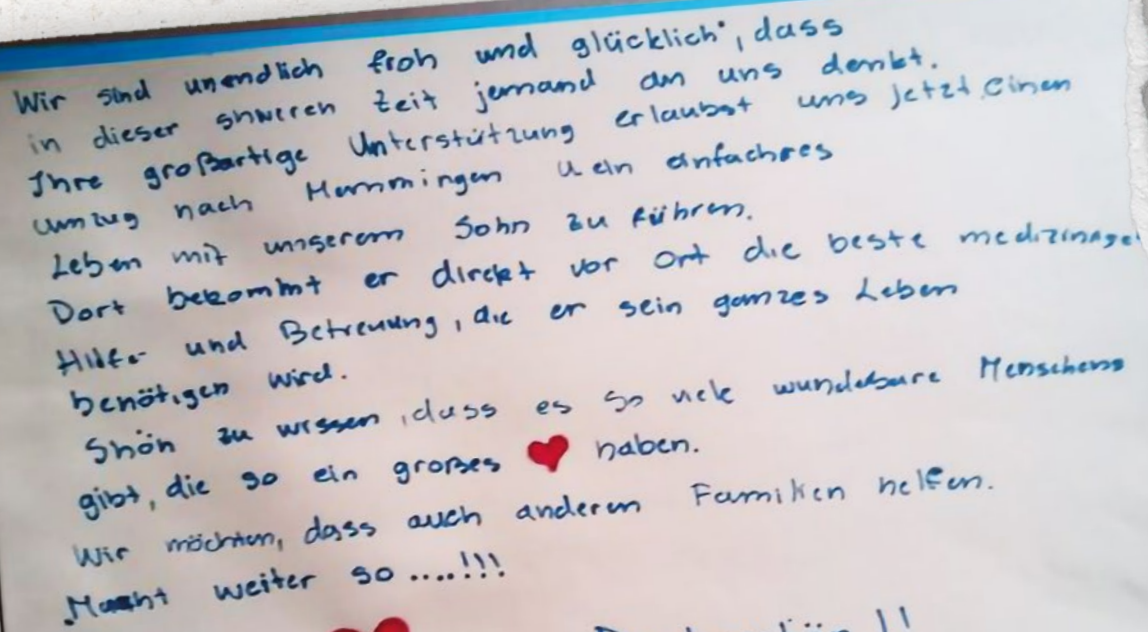 Wir sind unendlich froh und glücklich, dass
in dieser shweren Zeit jemand an uns denkt.
Ihre großartige Unterstützung erlaubst uns jetzt einen
umzug nach Hemmingen u ein einfaches
Leben mit unserem Sohn zu führen.
Dort bekommt er direkt vor Ort die beste
Hilfe und Betreuung, die er sein ganzes Leben
benötigen wird.
Shön zu wissen, dass es so viele wundebare Menschens
gibt, die so ein großes ❤ haben.
Wir möchten, dass auch anderen Familien helfen.
Macht weiter so ....!!!